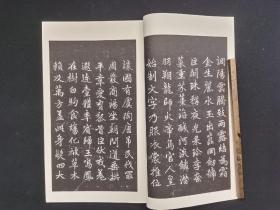 調陽雲騰致雨露結為霜
金生麗水玉出崑岡劍號
巨闕珠稱夜光菓珍李柰
菜重芥薑海鹹河淡鱗潛
羽翔龍師火帝鳥官人皇
始制文字乃服衣裳推位
讓國有虞陶唐弔民伐罪
周發商湯坐朝問道垂拱
平章愛育黎首臣伏戎羌
遐邇壹體率賓歸王鳴鳳
在樹白駒食場化被草木
賴及萬方蓋此身髮四大